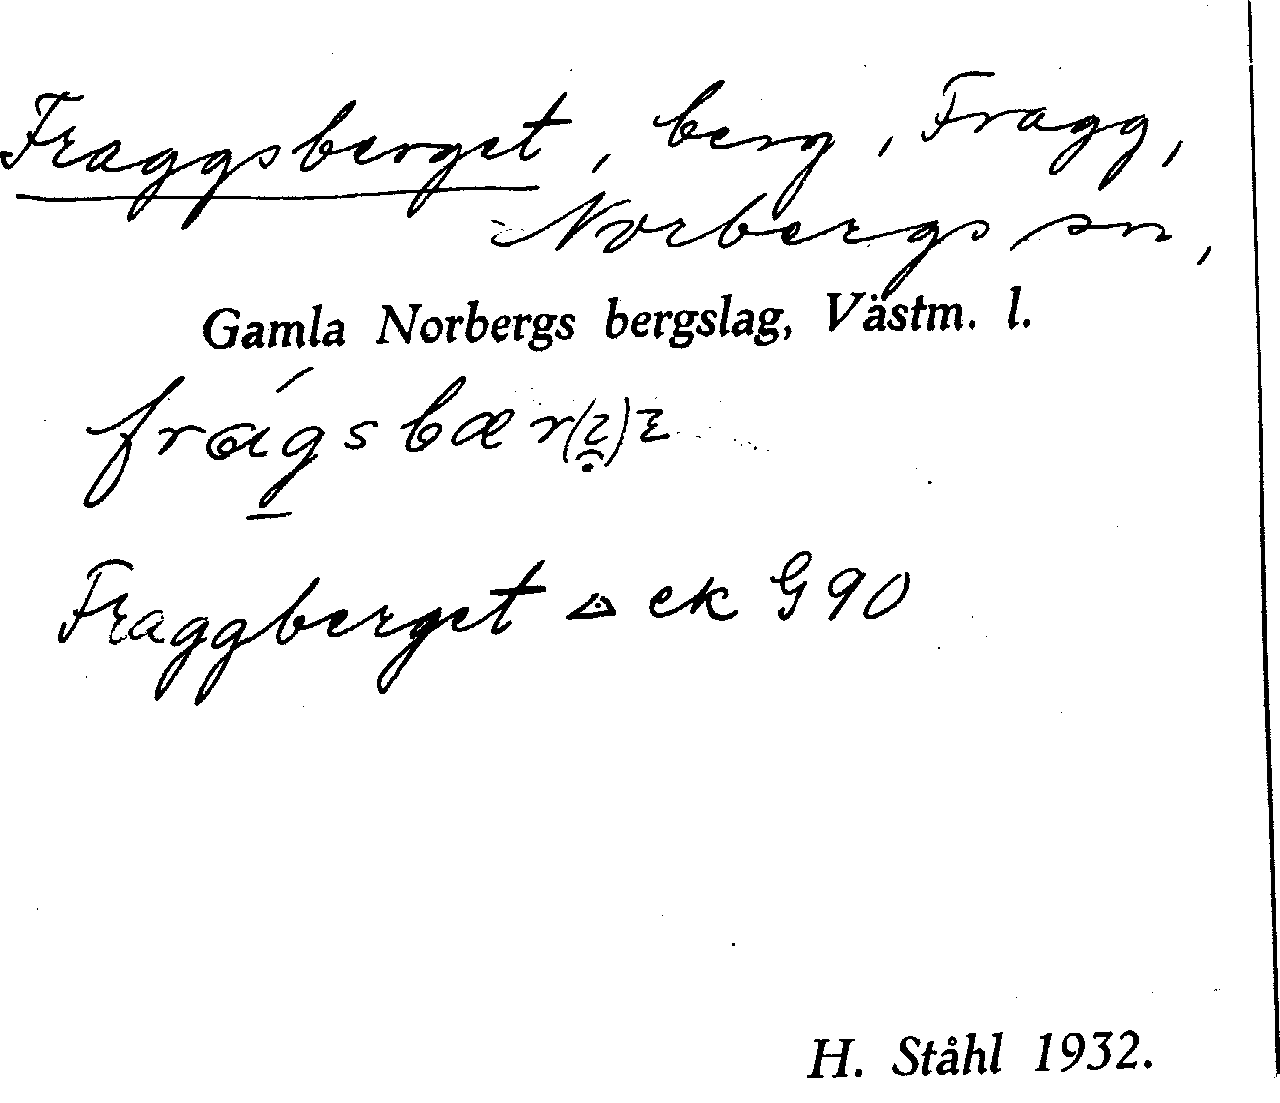 Fraggsberget, berg, Fragg,
Norbergs sn,
Gamla Norbergs bergslag, Västm. l.
Fraggberget △ ek G 90
H. Ståhl 1932.